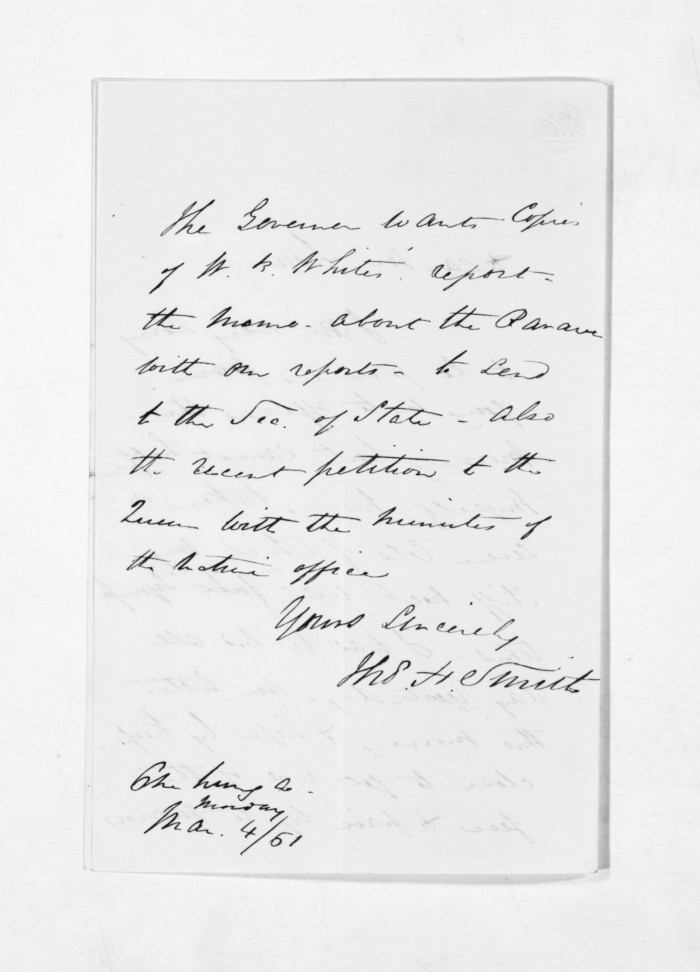 The Governer wants Copies
of W. B. White's. report -
the memo - about the
with our reports - to send
to the Sec. of State - also
the recent petition to the
Queen with the minutes of
the native office
Yours Sincerely
Thos. H. Smith
Monday
Mar. 4/61